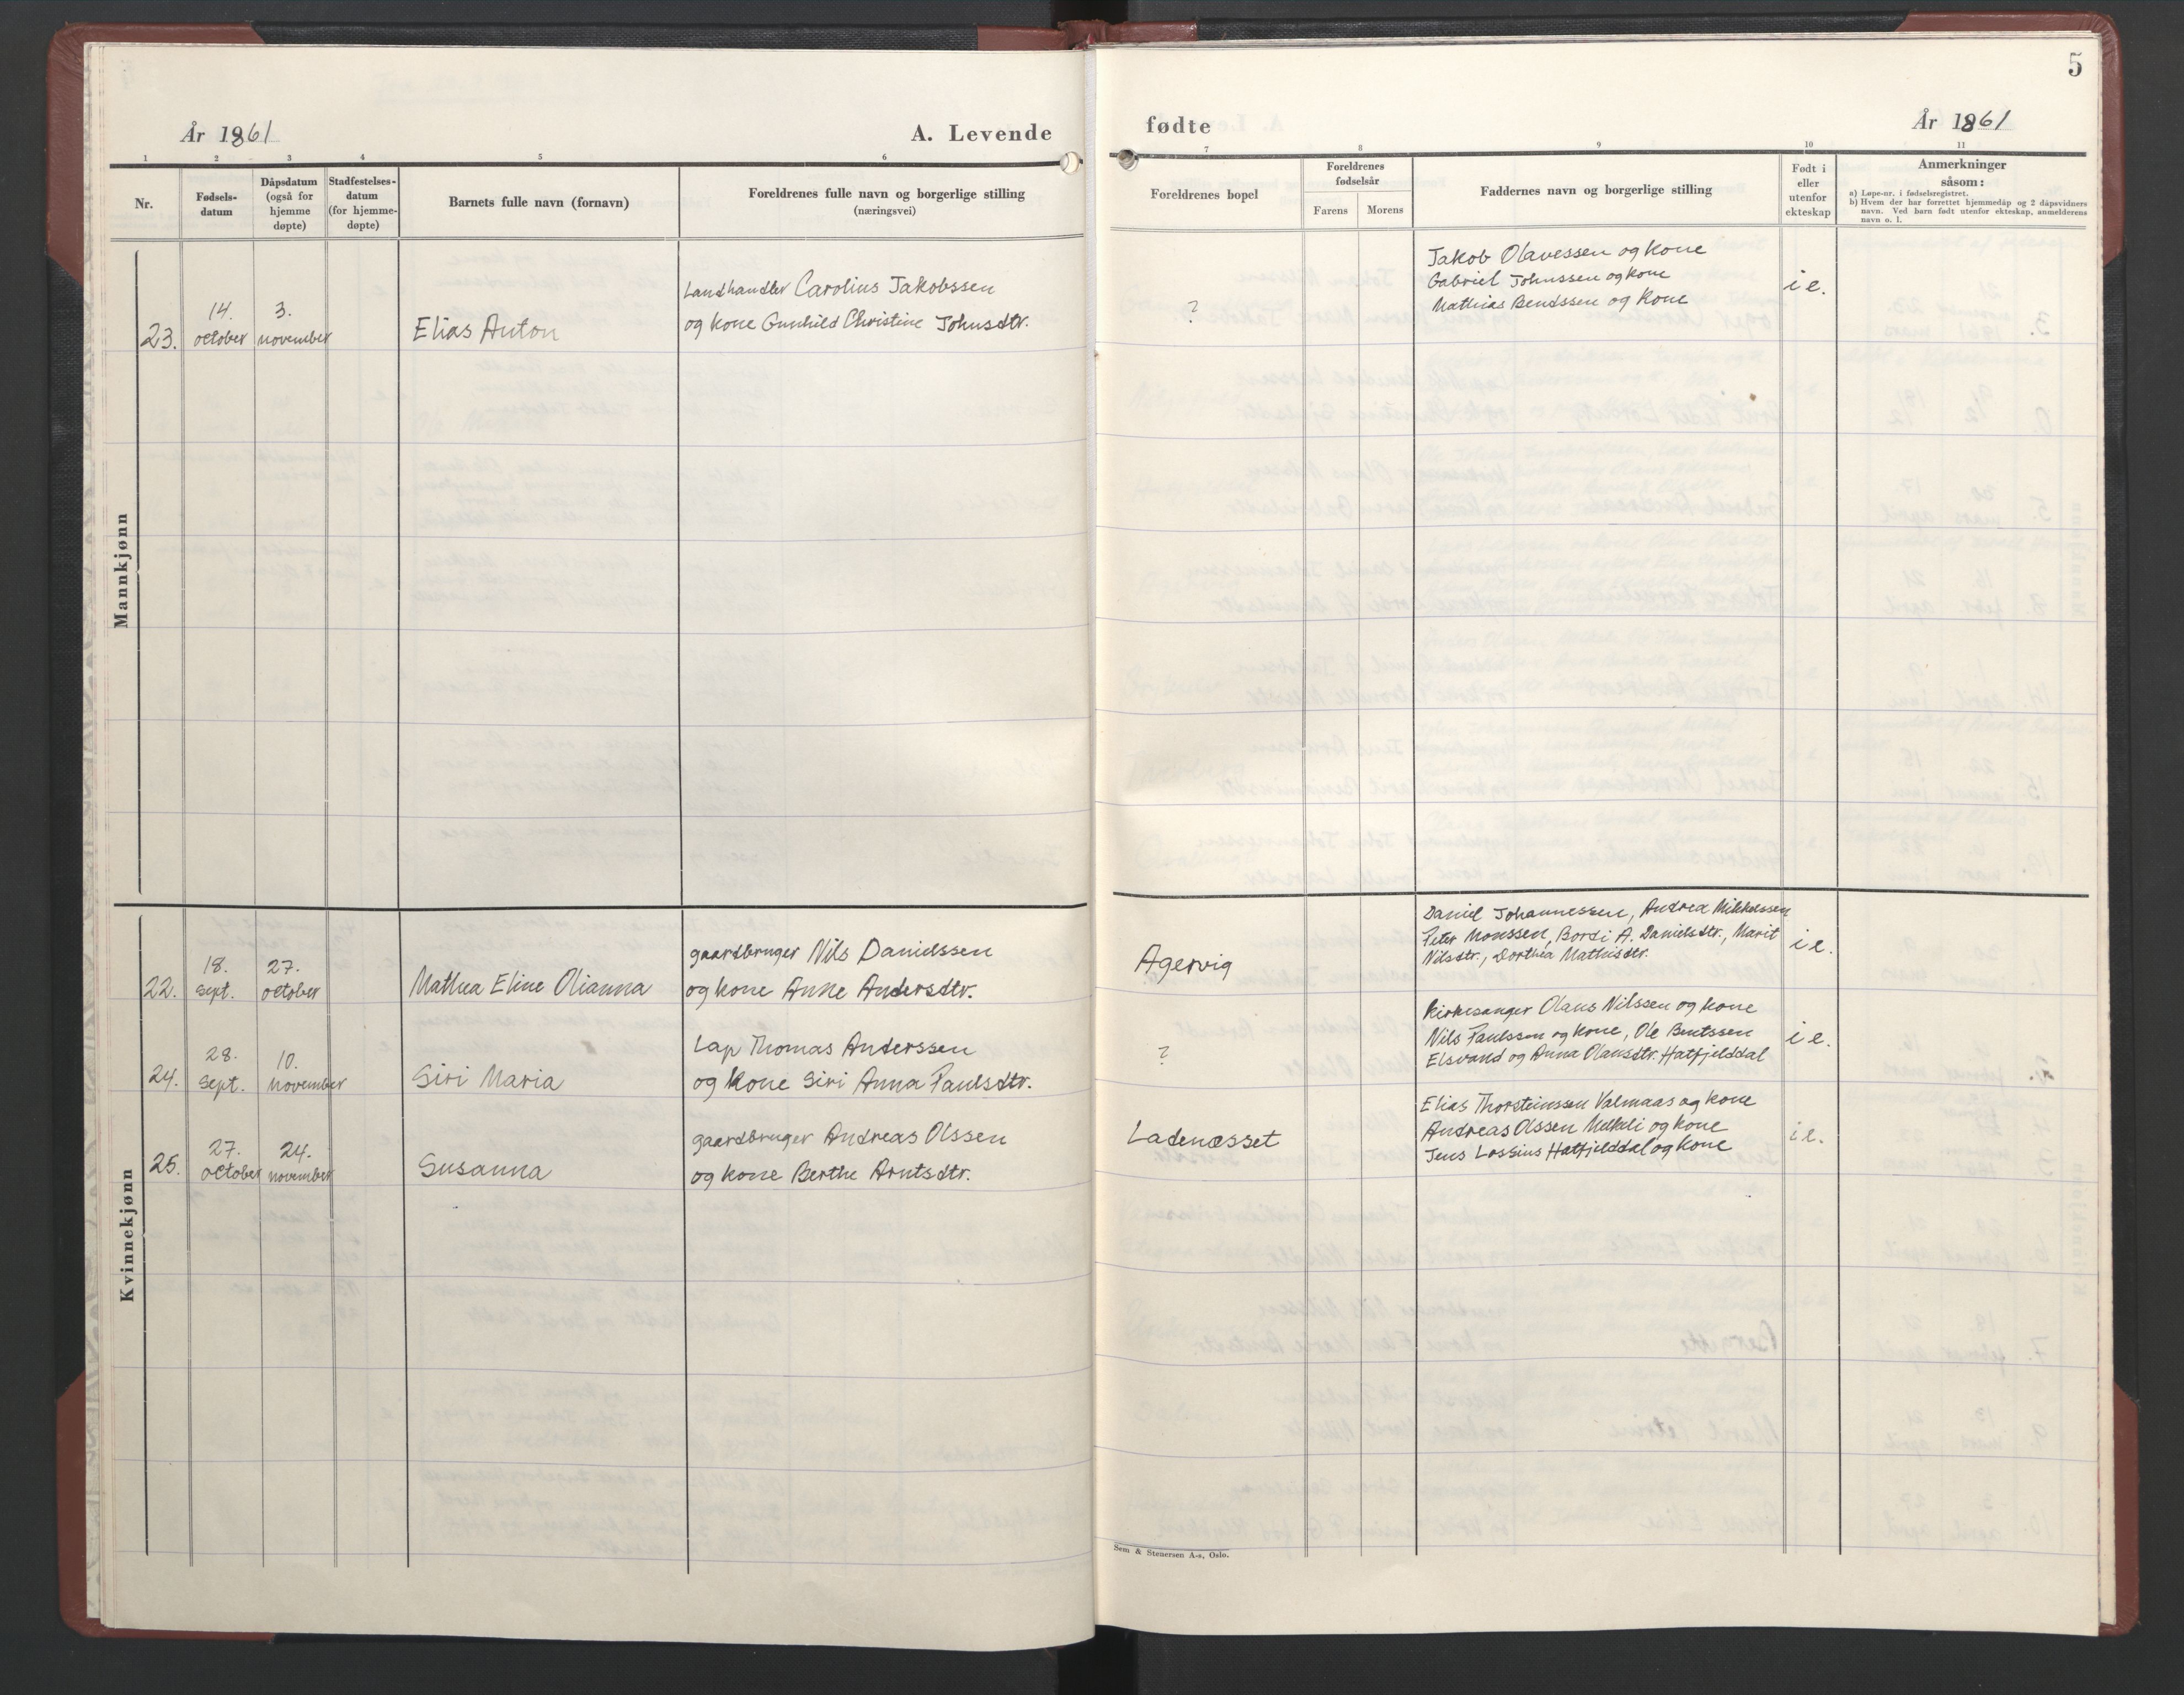 5
År 1861
A. Levende
fødte
År 1861
1 2 3 4 5 6 7 8 9 10 11
Nr.
Fødsels-
datum
Dåpsdatum
(også for
hjemme
døpte)
Stadfestelses-
datum
(for hjemme-
døpte)
Barnets fulle navn (fornavn)
Foreldrenes fulle navn og borgerlige stilling
(næringsvei)
Foreldrenes bopel
Foreldrenes
fødselsår
Farens
Morens
Faddernes navn og borgerlige stilling
Født i
eller
utenfor
ekteskap
Anmerkninger
såsom:
a) Løpe-nr. i fødselsregistret.
b) Hvem der har forrettet hjemmedåp og 2 dåpsvidners
navn. Ved barn født utenfor ekteskap, anmelderens
navn o. l.
Mannkjønn
23.
14.
october
3.
november
Elias Anton
Landhandler Carolius Jakobssen
og kone Gunhild Christine Johnsdtr.
?
Jakob Olavessen og kone
Gabriel Johnssen og kone
Mathias Bendssen og kone
i e.
Kvinnekjønn
22.
18.
sept.
27.
october
Mathea Eline Olianna
gaardbruger Nils Danielssen
og kone Anne Andersdtr.
Agervig
Daniel Johannessen, Andrea Mikkelssen
Peter Monssen, Bordi A. Danielsdtr., Marit
Nilsdtr., Dorthea Mathisdtr.
i e.
24.
28.
Sept.
10.
november
Siri Maria
Lap Thomas Anderssen
og kone Siri Anna Paulsdtr.
?
Kirkesanger Olaus Nilssen og kone
Nils Paulssen og kone, Ole Bentssen
Elsvand og Anna Olausdtr. Hatfjelddal
i e.
25.
27.
october
24.
november
Susanna
gaardbruger Andreas Olssen
og kone Berthe Arntsdtr.
Ladenæsset
Elias Thorsteinssen Valmaas og kone
Andreas Olssen Mikkeli og kone
Jens Lossius Hatfjelddal og kone
i e.
Sem & Stenersen A-s, Oslo.